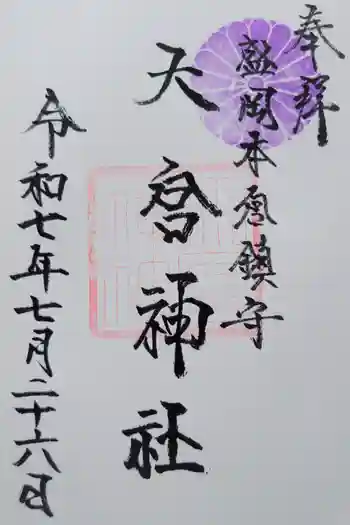 奉拝
盛岡本宮鎮守
天啓神社
令和七年七月二十六日